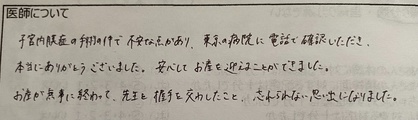 医師について
子宮内膜症の手術の件で不安な点があり、東京の病院に電話で確認いただき、
本当にありがとうございました。安心してお産を迎えることができました。
お産が無事に終わって、先生と握手を交わしたこと、忘れられない思い出になりました。